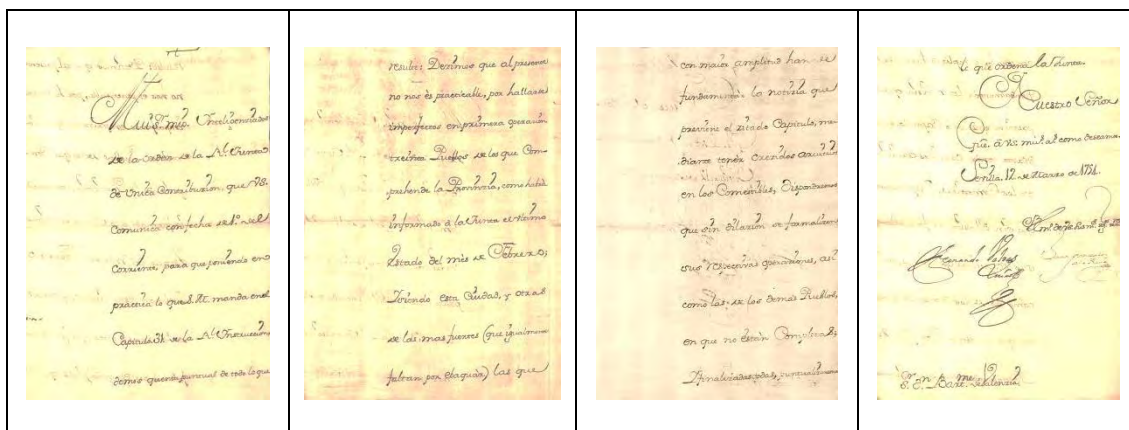 Mui S.r mio. Inteligenciados
de la orden de la R.l Junta
de Unica Contribucion, que VS.
Comunica con fecha de 1.º del
Corriente, para que poniendo en
practica lo que S.M. manda en el
Capitulo 31 de la R.l Instruccion
demos quenta puntual de todo lo que
resulte: Dezimos que al presente
no nos és practicable, por hallarse
imperfectas en primera operacion
treinta Pueblos de los que Com-
prehende la Provinzia, como habrá
informado á la Junta el ultimo
Estado del mes de Febrero;
Siendo esta Ciudad, y otras
de las mas fuertes (que igualmente
faltan por evaquar) las que
con maior amplitud han de
fundamentar la notizia que
previene el zitado Capitulo, me-
diante tener crezidos
en los Comestibles, Dispondremos
que sin dilazion se formalizen
sus respectivas operaziones, asi
como las de los demas Pueblos,
en que no están Completas;
Finalizadas todas, puntualmente
lo que ordena la Junta.
Nuestro Señor
Gue. á VS. mu.s a.s como deseamos.
Sevilla, 12 de Marzo de 1751.
Fernando Valdes
Quirós
S.r D.n Bart.me de Valencia